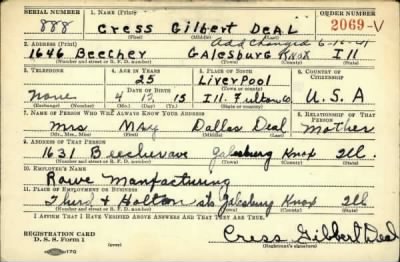 SERIAL NUMBER 1. NAME (Print) ORDER NUMBER
888 Cress Gilbert Deal 2069-V
(First) (Middle) (Last)
2. ADDRESS (Print) Add changed 6-17-41
1646 Beecher Galesburg Knox Ill
(Number and street or R. F. D. number) (Town) (County) (State)
3. TELEPHONE 4. AGE IN YEARS 5. PLACE OF BIRTH 6. COUNTRY OF CITIZENSHIP
25 Liverpool
DATE OF BIRTH (Town or county)
None 4 13 15 Ill. Fulton Co U.S.A
(Exchange) (Number) (Mo.) (Day) (Yr.) (State or country)
7. NAME OF PERSON WHO WILL ALWAYS KNOW YOUR ADDRESS 8. RELATIONSHIP OF THAT PERSON
Mrs May Dallas Deal Mother
(Mr., Mrs., Miss) (First) (Middle) (Last)
9. ADDRESS OF THAT PERSON
1631 Beecher ave Galesburg Knox Ill.
(Number and street or R. F. D. number) (Town) (County) (State)
10. EMPLOYER'S NAME
Rowe Manfacturing
11. PLACE OF EMPLOYMENT OR BUSINESS
Third & Holton sts Galesburg Knox Ill
(Number and street or R. F. D. number) (Town) (County) (State)
I AFFIRM THAT I HAVE VERIFIED ABOVE ANSWERS AND THAT THEY ARE TRUE.
REGISTRATION CARD
D. S. S. Form 1 (over) Cress Gilbert Deal
(Registrant's signature)